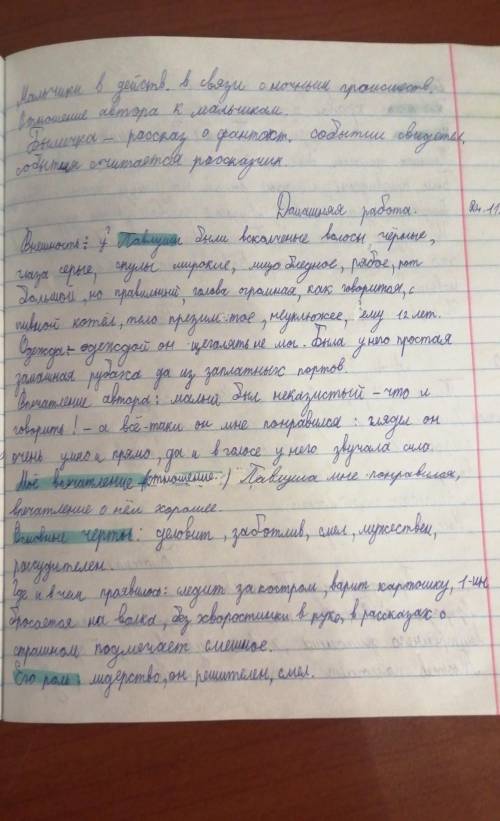 Мальчики в действ. в связи с ночным происшеств.
Отношение автора к мальчикам.
Быличка – рассказ о фантаст. событии свидетел.
события считается рассказчик.
Домашняя работа.
Внешность: У Павлуши были всклоченые волосы, чёрные,
глаза серые, скулы широкие, лицо бледное, рябое, рот
большой, но правильный, голова огромная, как говорится, с
пивной котёл, тело приземистое, неуклюжее, ему 12 лет.
Одежда: одеждой он щеголять не мог. Была у него простая
замашная рубаха да из заплатных портов.
Впечатление автора: малый был неказистый – что и
говорить! – а всё-таки он мне понравился: глядел он
очень умно и прямо, да и в голосе у него звучала сила.
Моё впечатление (отношение:) Павлуша мне понравился,
впечатление о нём хорошее.
Основные черты: деловит, заботлив, смел, мужествен,
рассудителен.
Где и в чем проявилось: следит за костром, варит картошку, 1-ин
бросается на волка, без хворостинки в руке, в рассказах о
страшном подмечает смешное.
Его роль: лидерство, он решителен, смел.